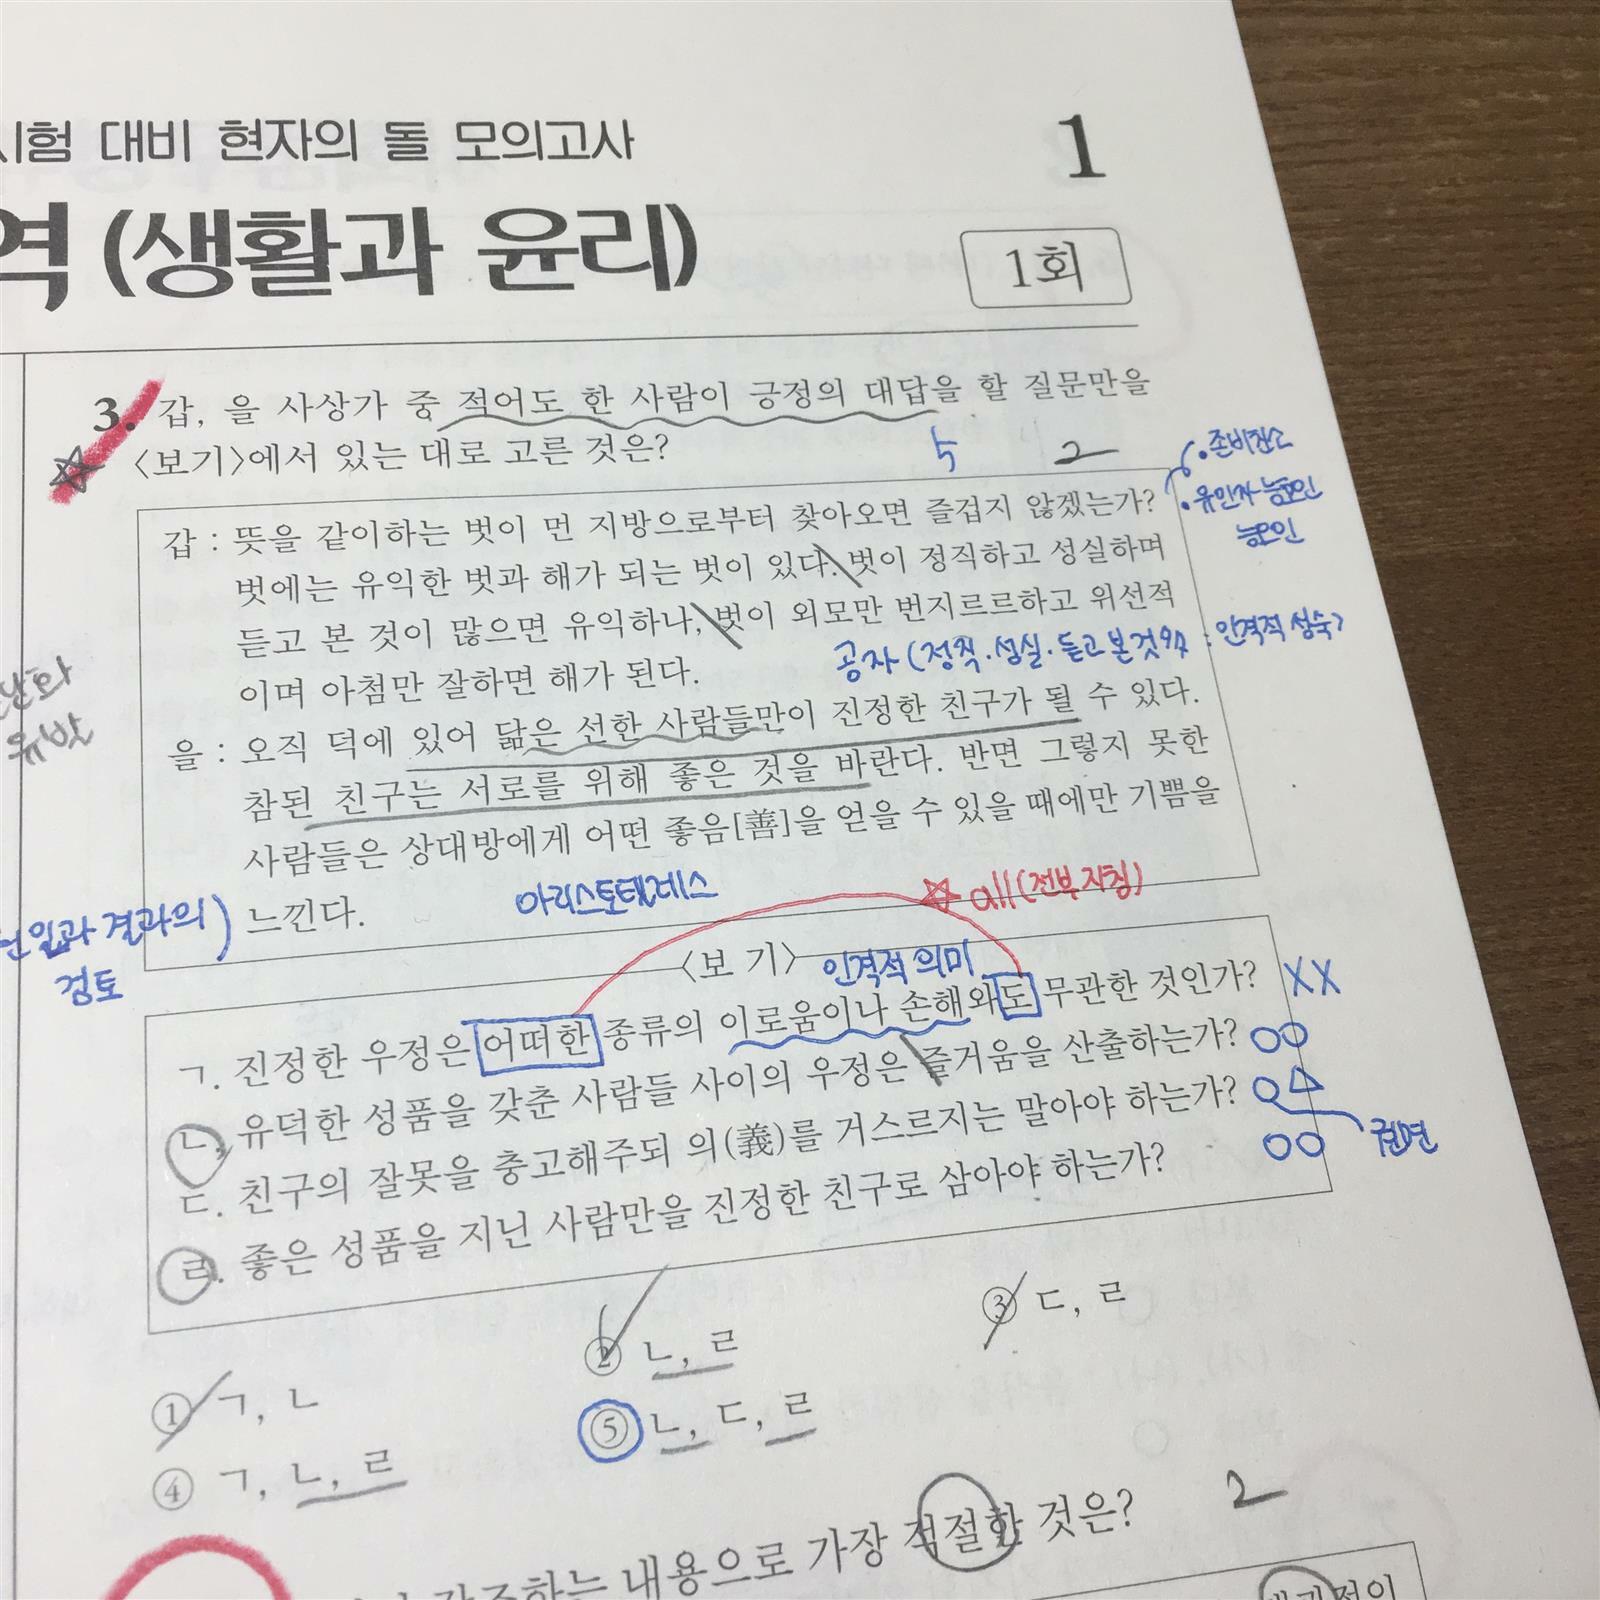 시험 대비 현자의 돌 모의고사
1
역 (생활과 윤리)
1회
3. 갑, 을 사상가 중 적어도 한 사람이 긍정의 대답을 할 질문만을
〈보기〉에서 있는 대로 고른 것은?
5 2
갑 : 뜻을 같이하는 벗이 먼 지방으로부터 찾아오면 즐겁지 않겠는가?
벗에는 유익한 벗과 해가 되는 벗이 있다. 벗이 정직하고 성실하며
듣고 본 것이 많으면 유익하나, 벗이 외모만 번지르르하고 위선적
이며 아첨만 잘하면 해가 된다.
공자 (정직·성실·듣고 본것 : 인격적 성숙?
을 : 오직 덕에 있어 닮은 선한 사람들만이 진정한 친구가 될 수 있다.
참된 친구는 서로를 위해 좋은 것을 바란다. 반면 그렇지 못한
사람들은 상대방에게 어떤 좋음[善]을 얻을 수 있을 때에만 기쁨을
느낀다.
아리스토텔레스
all (전부 지칭)
일과 결과의)
검토
〈보 기〉
인격적 의미
ㄱ. 진정한 우정은 어떠한 종류의 이로움이나 손해와도 무관한 것인가? XX
ㄴ. 유덕한 성품을 갖춘 사람들 사이의 우정은 즐거움을 산출하는가? ○○
ㄷ. 친구의 잘못을 충고해주되 의(義)를 거스르지는 말아야 하는가? ○△
ㄹ. 좋은 성품을 지닌 사람만을 진정한 친구로 삼아야 하는가? ○○
① ㄱ, ㄴ
② ㄴ, ㄹ
③ ㄷ, ㄹ
④ ㄱ, ㄴ, ㄹ
⑤ ㄴ, ㄷ, ㄹ
하는 내용으로 가장 적절한 것은?
2